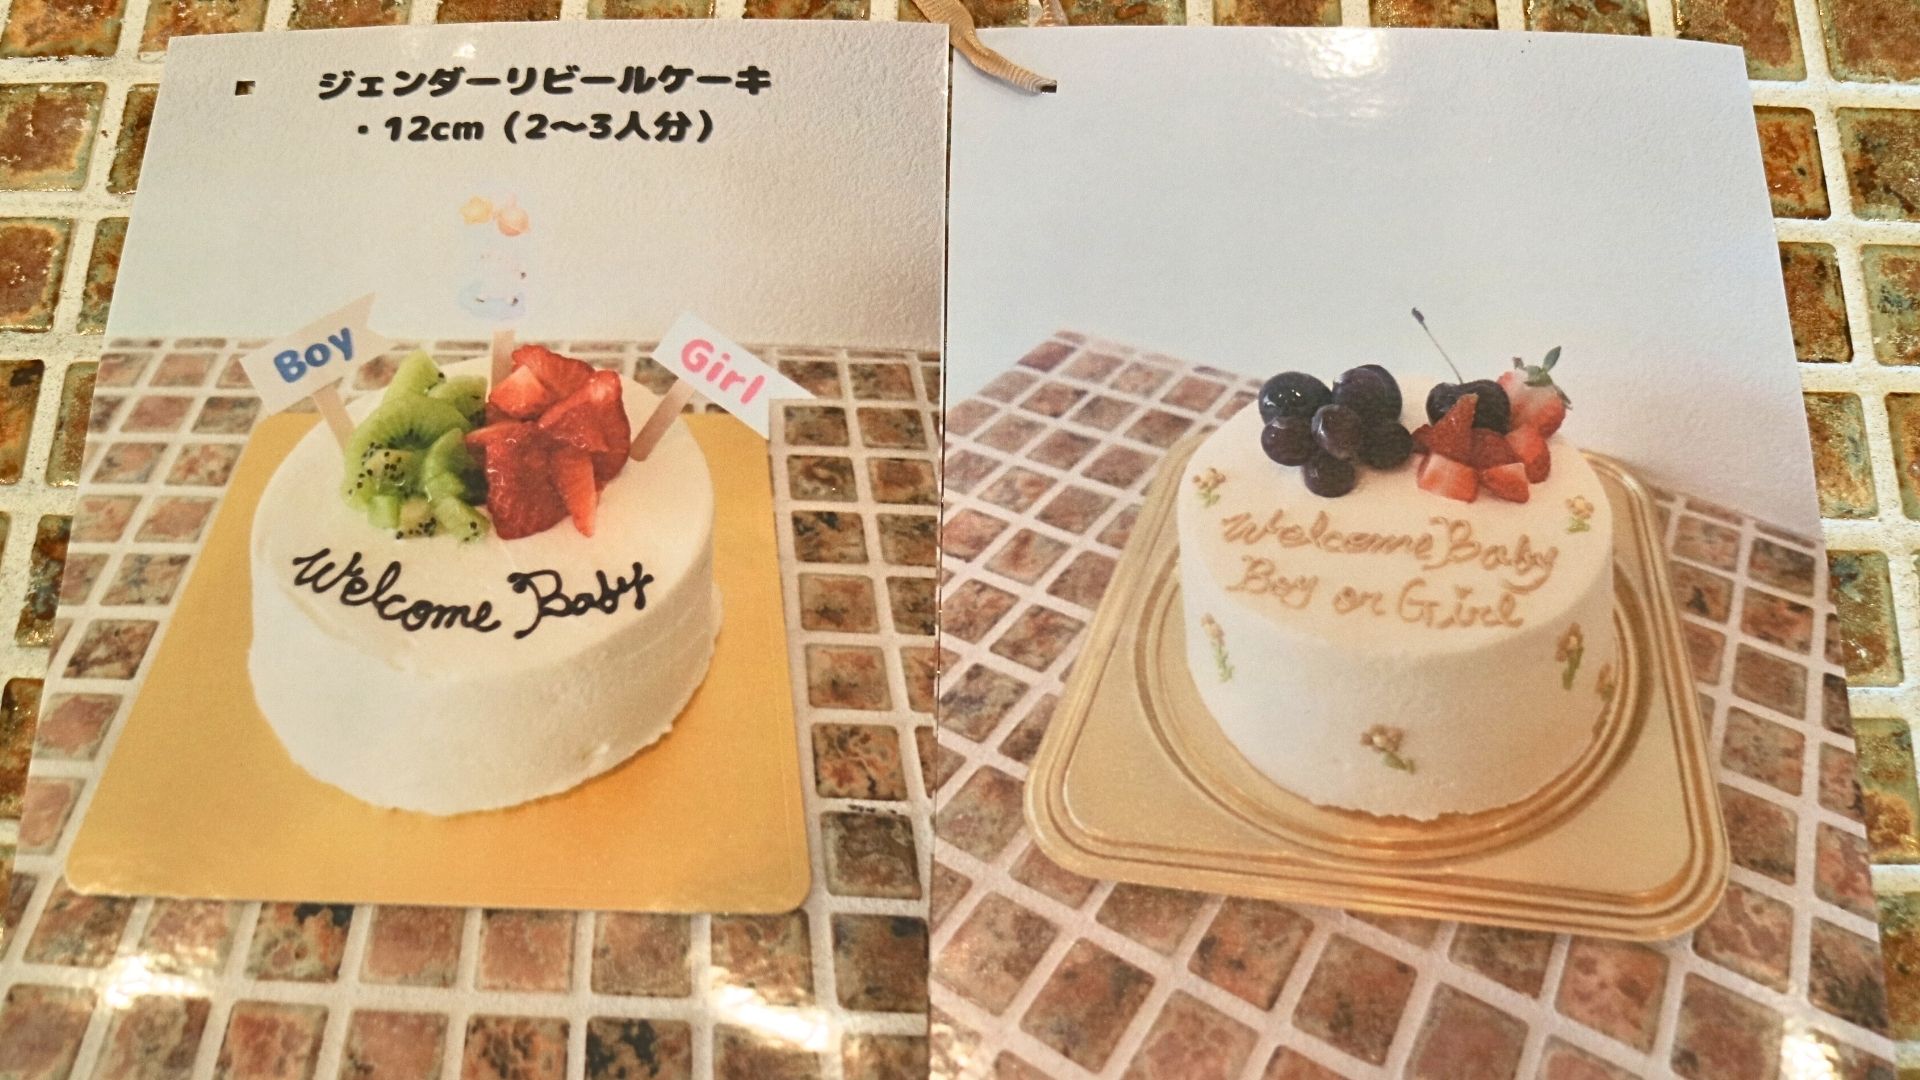 ジェンダーリビールケーキ
・12cm（2〜3人分）
Boy
Girl
Welcome Baby
Welcome Baby
Boy or Girl